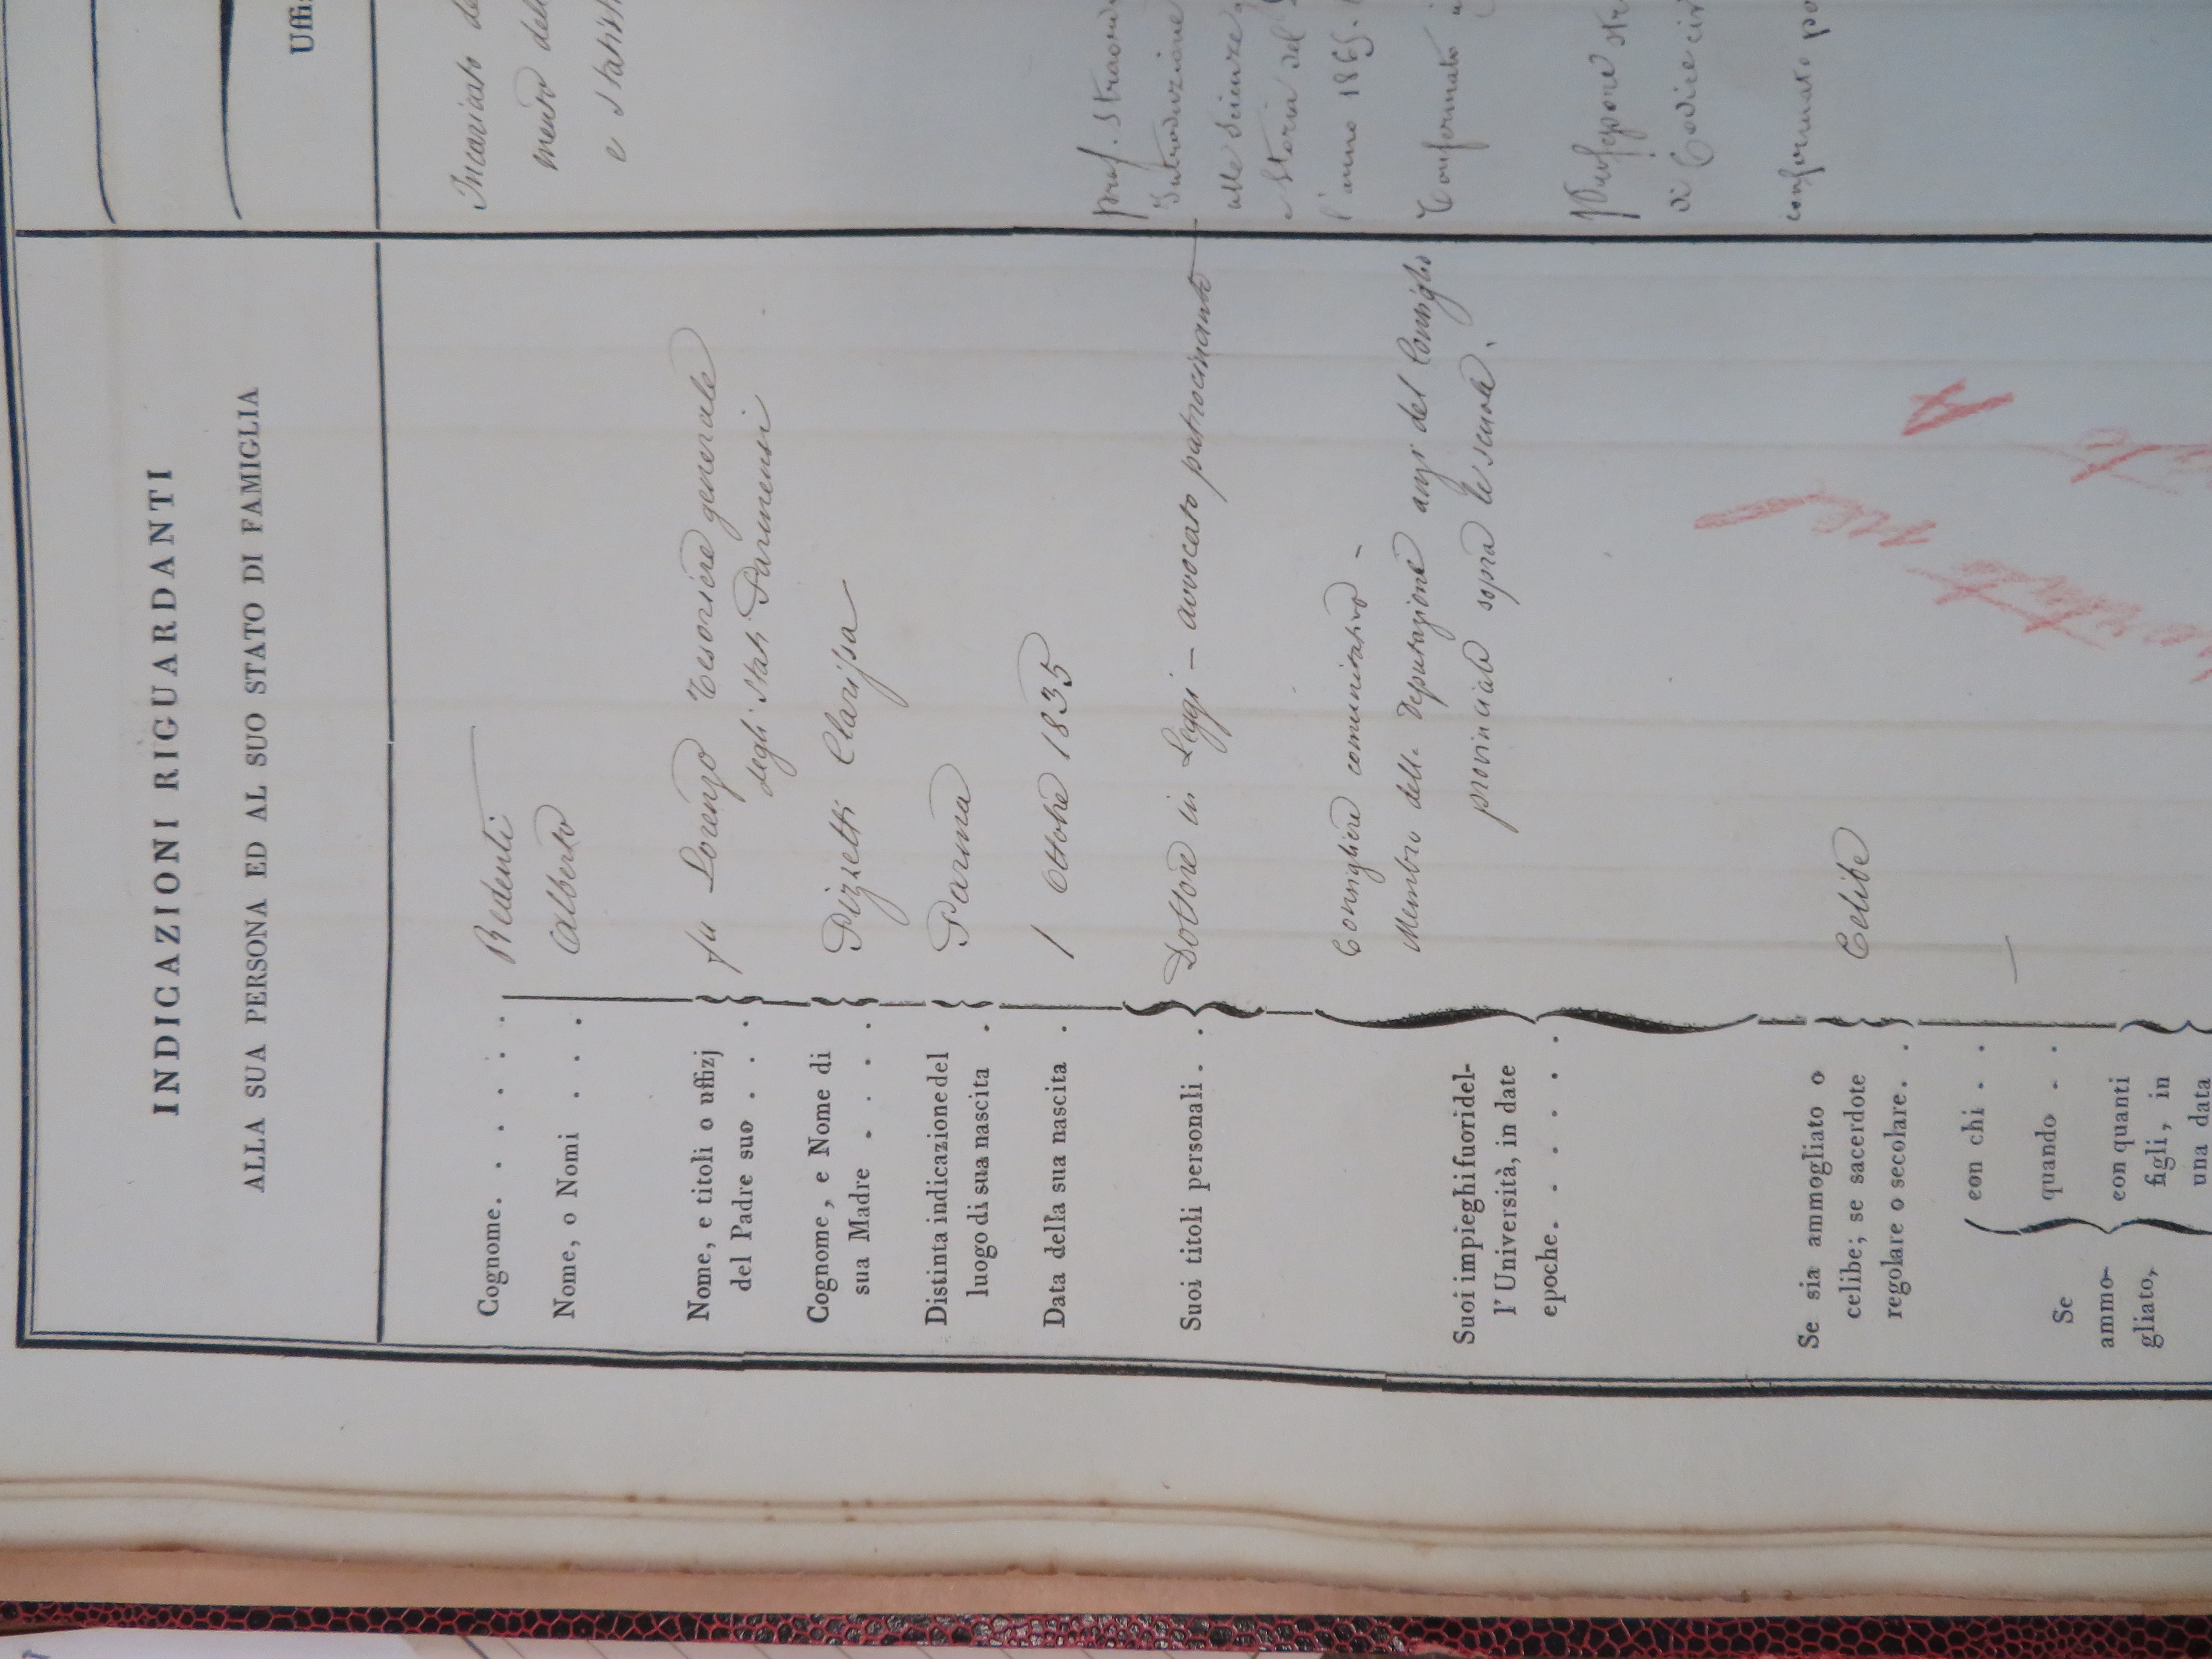 INDICAZIONI RIGUARDANTI
ALLA SUA PERSONA ED AL SUO STATO DI FAMIGLIA
Cognome. . . . . . Redenti
Nome, o Nomi . . . . Alberto
Nome, e titoli o uffizj fu Lorenzo Tesoriere generale
del Padre suo . . . . degli Stati Parmensi
Cognome, e Nome di Pizzetti Clarissa
sua Madre . . . .
Distinta indicazione del Parma
luogo di sua nascita .
Data della sua nascita . 1 Ottobre 1835
Suoi titoli personali . . Dottore in Leggi – avvocato patrocinante
Consigliere comunitativo –
Suoi impieghi fuori del- Membro della Deputazione anzi del Consiglio
l'Università, in date provinciale sopra le scuole.
epoche. . . . . .
Se sia ammogliato o Celibe
celibe; se sacerdote
regolare o secolare. .
Se
ammo-
gliato,
con chi . . —
quando . .
con quanti
figli, in
una data
Uffi
Incaricato de
mento del
e stati
prof. straord
Introduzione
alle Scienze
e Storia del
l'anno 1865.
Confermato
Professore str
di Codice civ
confermato po